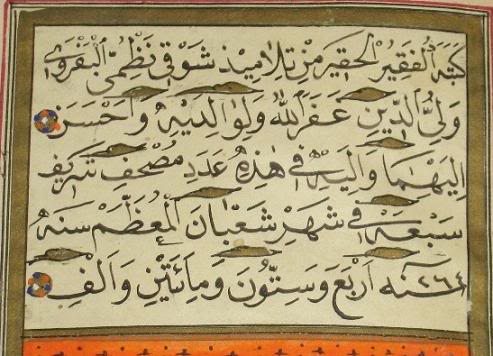 كتبه الفقير الحقير من تلاميذ شوقي نظمى البقروى
ولى الدين غفر الله ولوالديه واحسن
اليهما واليه فى هذه عدد مصحف شريف
سبعه فى شهر شعبان المعظم سنه
١٢٦٤ سنه اربع وستون ومائتين والف